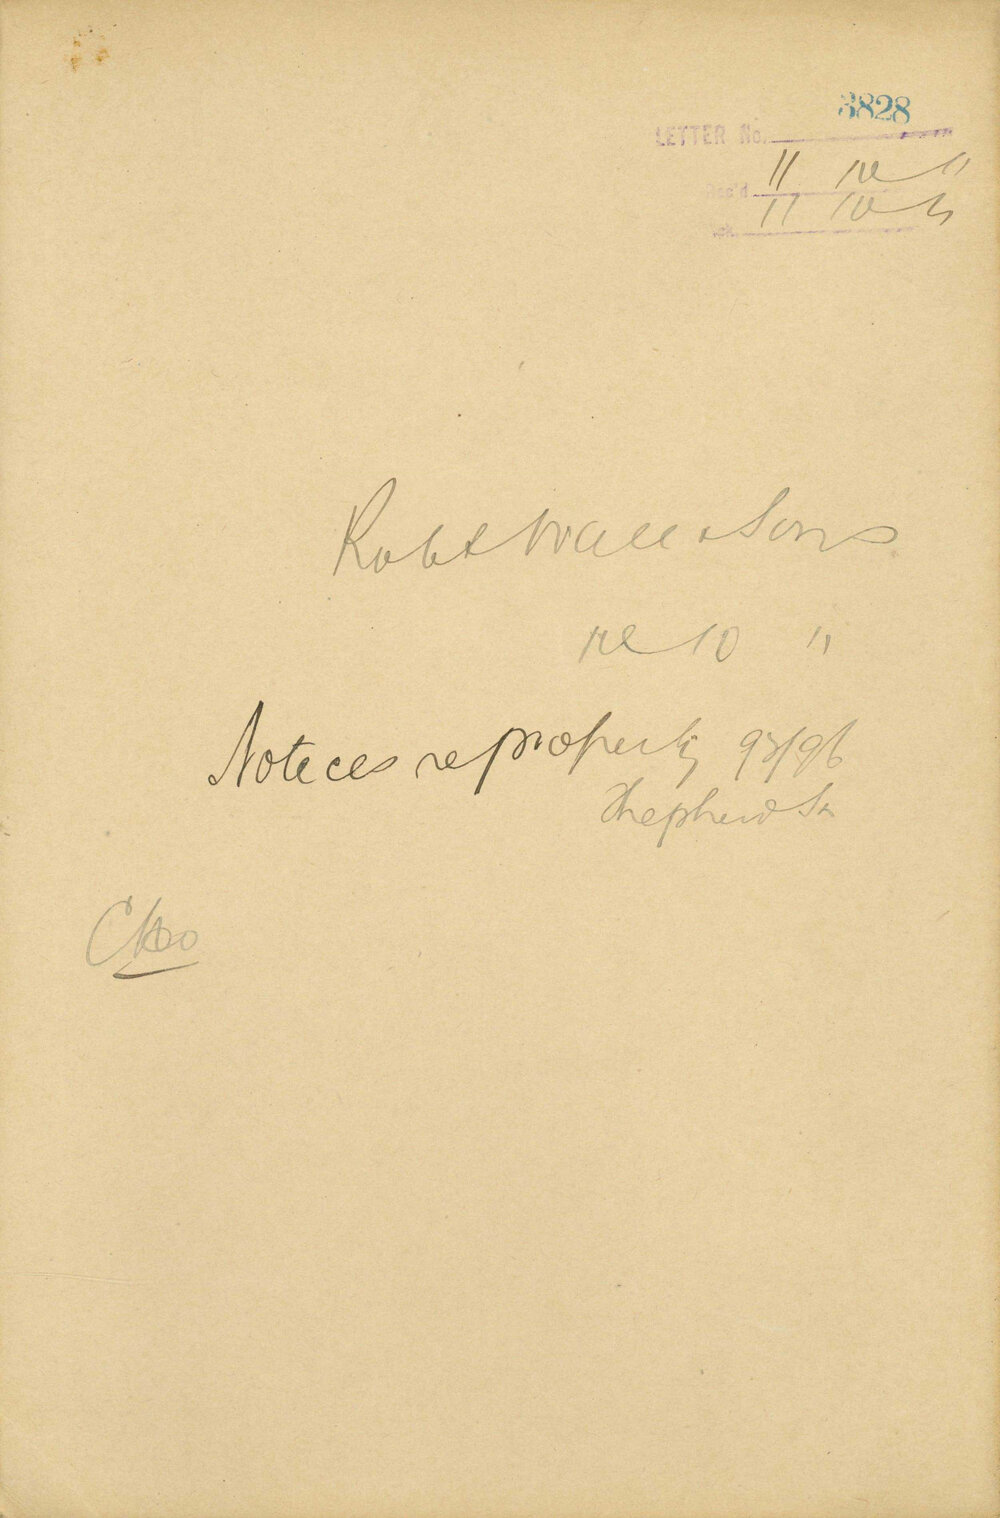 3828
LETTER No.
Rec'd 11 10 11
11 10 11
Robt Wall & Sons
10 11
Notices re property 93/96
Shepherd St